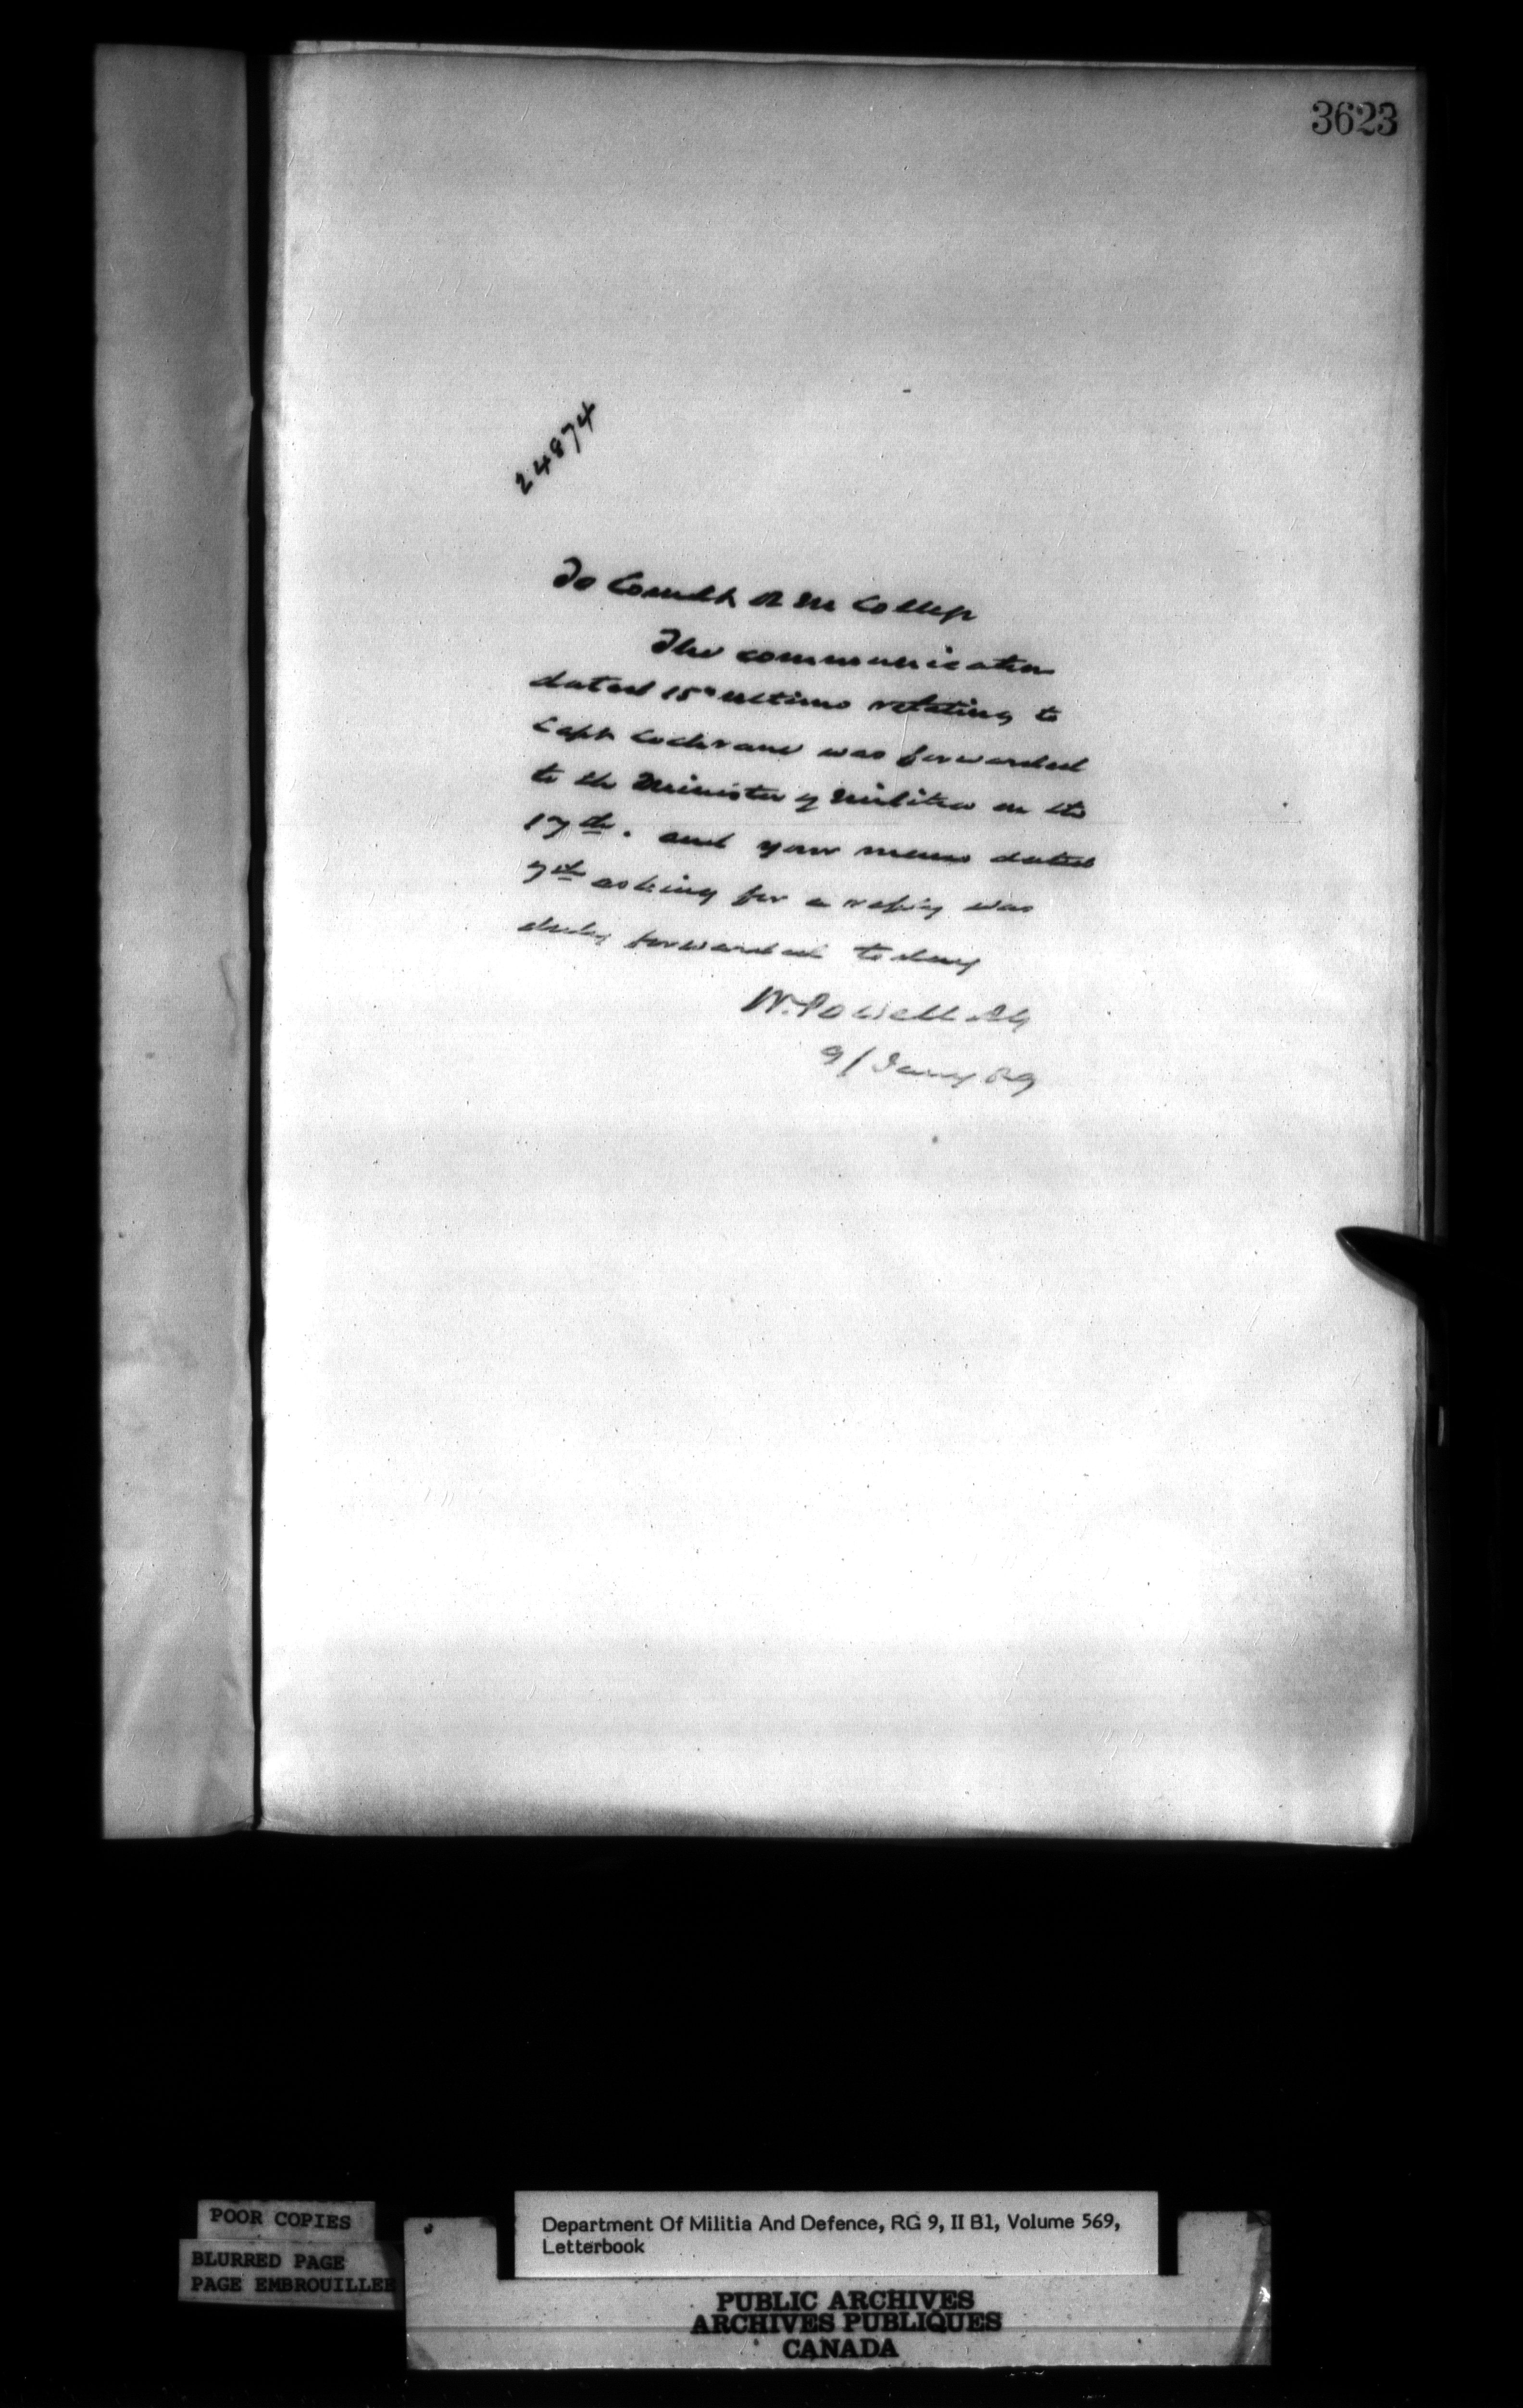 3623
24874
To Comdt R M College
The communication
dated 15th ultimo relating to
Capt Cochrane was forwarded
to the Minister of Militia on the
17th. and your memo dated
7th asking for a reply was
duly forwarded today
W. Powell AG
9/Jany 89
POOR COPIES
BLURRED PAGE
PAGE EMBROUILLEE
Department Of Militia And Defence, RG 9, II B1, Volume 569,
Letterbook
PUBLIC ARCHIVES
ARCHIVES PUBLIQUES
CANADA